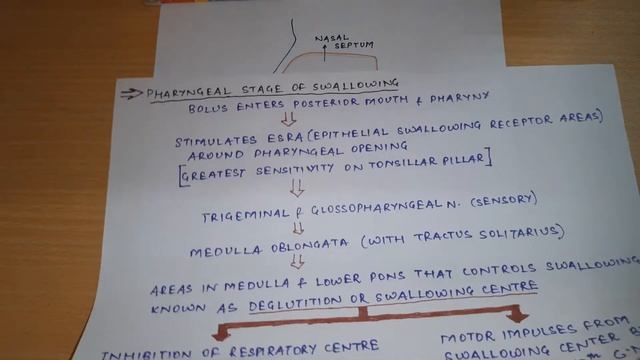 NASAL
SEPTUM
⇒ PHARYNGEAL STAGE OF SWALLOWING
BOLUS ENTERS POSTERIOR MOUTH & PHARYNY
STIMULATES ESRA (EPITHELIAL SWALLOWING RECEPTOR AREAS)
AROUND PHARYNGEAL OPENING
[GREATEST SENSITIVITY ON TONSILLAR PILLAR]
TRIGEMINAL & GLOSSOPHARYNGEAL N. (SENSORY)
MEDULLA OBLONGATA (WITH TRACTUS SOLITARIUS)
AREAS IN MEDULLA & LOWER PONS THAT CONTROLS SWALLOWING
KNOWN AS DEGLUTITION OR SWALLOWING CENTRE
INHIBITION OF RESPIRATORY CENTRE
MOTOR IMPULSES FROM
SWALLOWING CENTER